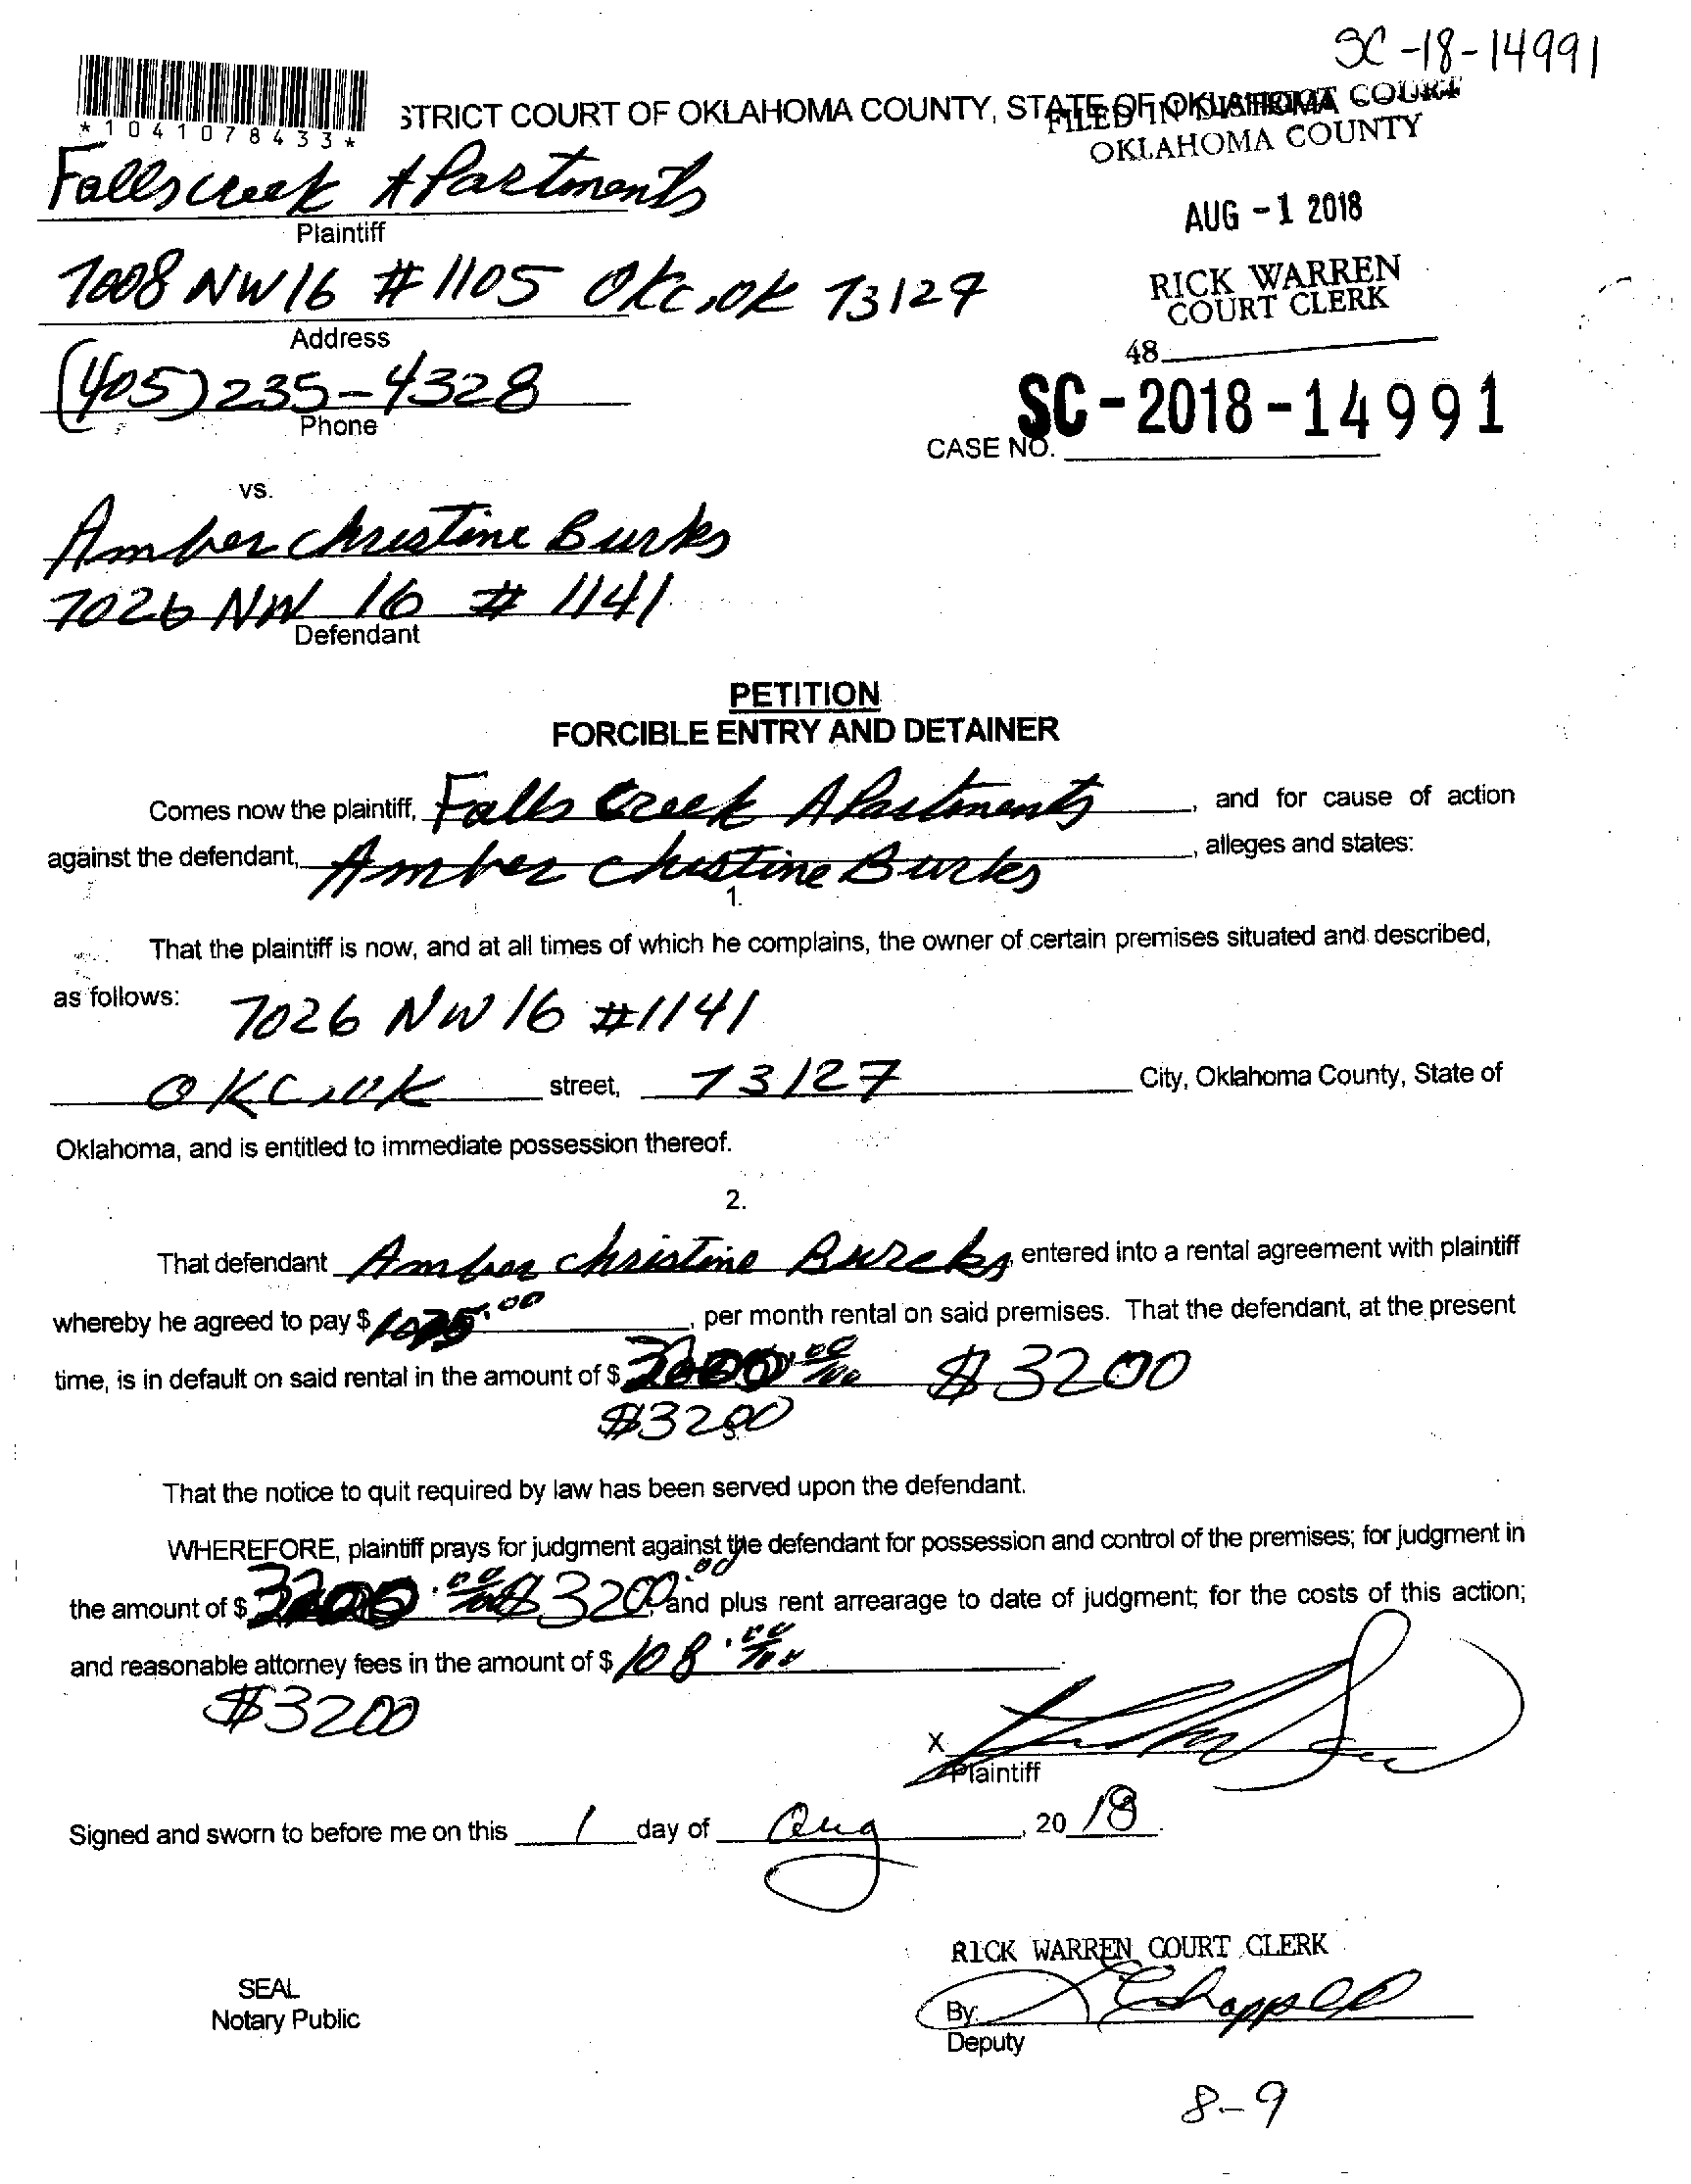 SC-18-14991
*1041078433*
STRICT COURT OF OKLAHOMA COUNTY, STATE OF OKLAHOMA
FILED IN DISTRICT COURT
OKLAHOMA COUNTY
Fallscreek APartments
Plaintiff
AUG -1 2018
7008 NW 16 # 1105 OKC, OK 73127
Address
RICK WARREN
COURT CLERK
48
(405) 235-4328
Phone
SC-2018-14991
CASE NO.
vs.
Amber christine Burks
7026 NW 16 # 1141
Defendant
PETITION
FORCIBLE ENTRY AND DETAINER
Comes now the plaintiff, Falls Creek APartments, and for cause of action
against the defendant, Amber christine Burks, alleges and states:
1.
That the plaintiff is now, and at all times of which he complains, the owner of certain premises situated and described,
as follows: 7026 NW 16 #1141
OKC, OK street, 73127 City, Oklahoma County, State of
Oklahoma, and is entitled to immediate possession thereof.
2.
That defendant Amber christine Burcks entered into a rental agreement with plaintiff
whereby he agreed to pay $ .00, per month rental on said premises. That the defendant, at the present
time, is in default on said rental in the amount of $ $3200
$3200
3.
That the notice to quit required by law has been served upon the defendant.
WHEREFORE, plaintiff prays for judgment against the defendant for possession and control of the premises; for judgment in
the amount of $ $3200.00 and plus rent arrearage to date of judgment; for the costs of this action;
and reasonable attorney fees in the amount of $ 108.00/100
$3200
X
Plaintiff
Signed and sworn to before me on this 1 day of Aug, 2018.
RICK WARREN COURT CLERK
SEAL
Notary Public
By:
Deputy
8-9